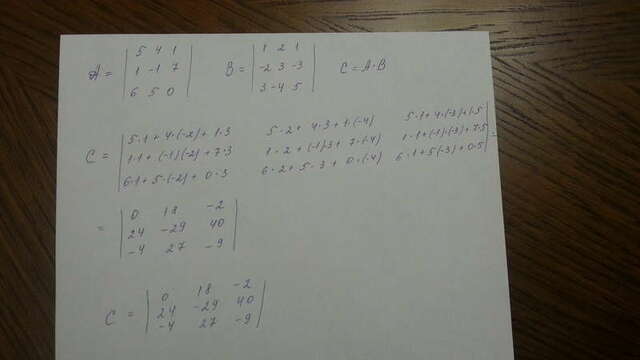 A = | 5 4 1 | B = | 1 2 1 | C = A·B
| 1 -1 7 | | -2 3 -3 |
| 6 5 0 | | 3 -4 5 |
C = | 5·1+4·(-2)+1·3 5·2+4·3+1·(-4) 5·1+4·(-3)+1·5 |
| 1·1+(-1)(-2)+7·3 1·2+(-1)3+7·(-4) 1·1+(-1)·(-3)+7·5 | =
| 6·1+5·(-2)+0·3 6·2+5·3+0·(-4) 6·1+5(-3)+0·5 |
= | 0 18 -2 |
| 24 -29 40 |
| -4 27 -9 |
C = | 0 18 -2 |
| 24 -29 40 |
| -4 27 -9 |